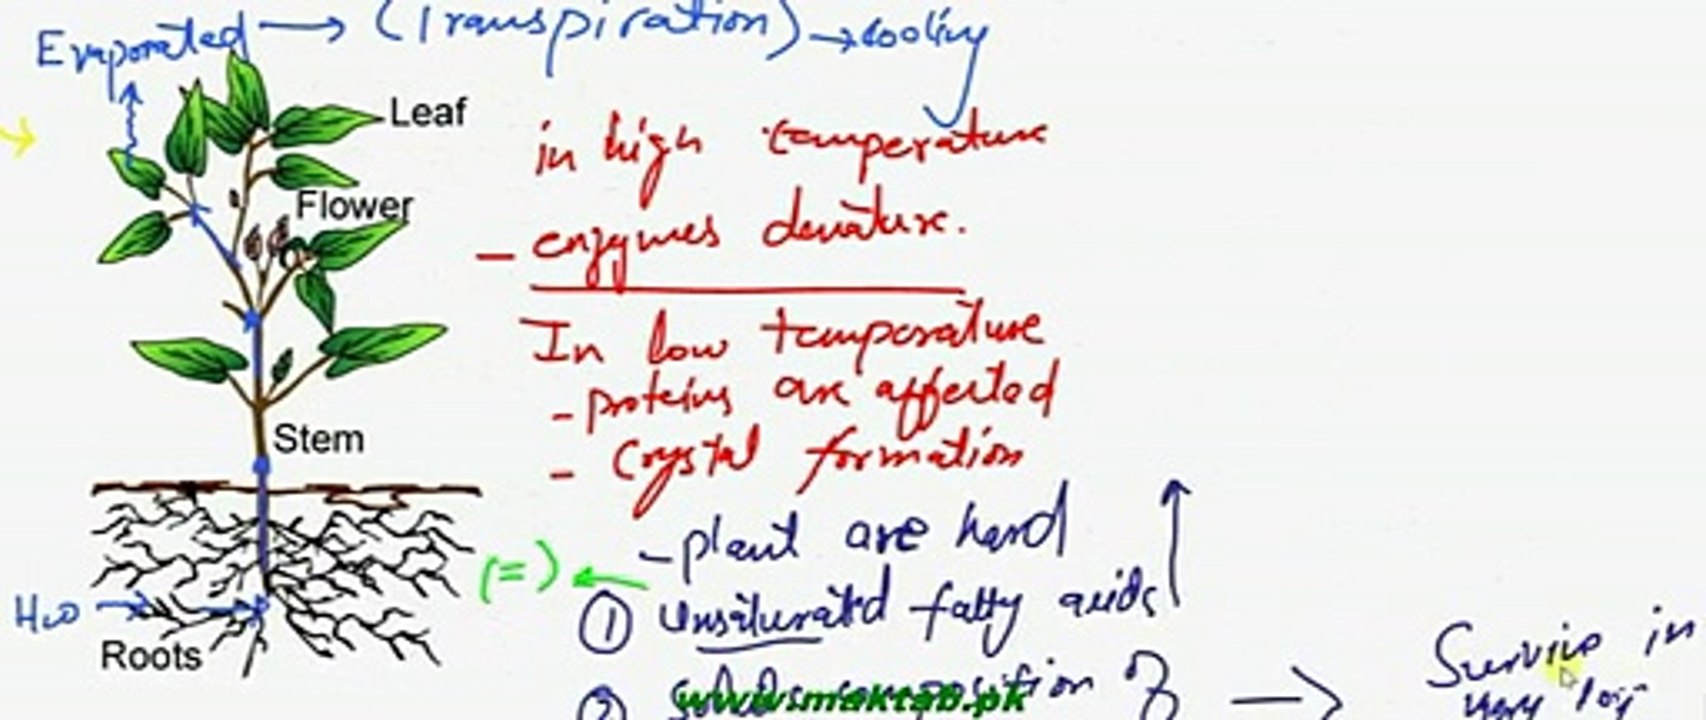 Evaporated → (Transpiration) → cooling
Leaf
in high temperature
Flower
- enzymes denature.
In low temperature
- proteins are affected
Stem
- Crystal formation
- plant are hard
(=) ←
① Unsaturated fatty acids ↑
H₂O
Roots
② composition →
Survive in
very low
www.maktab.pk